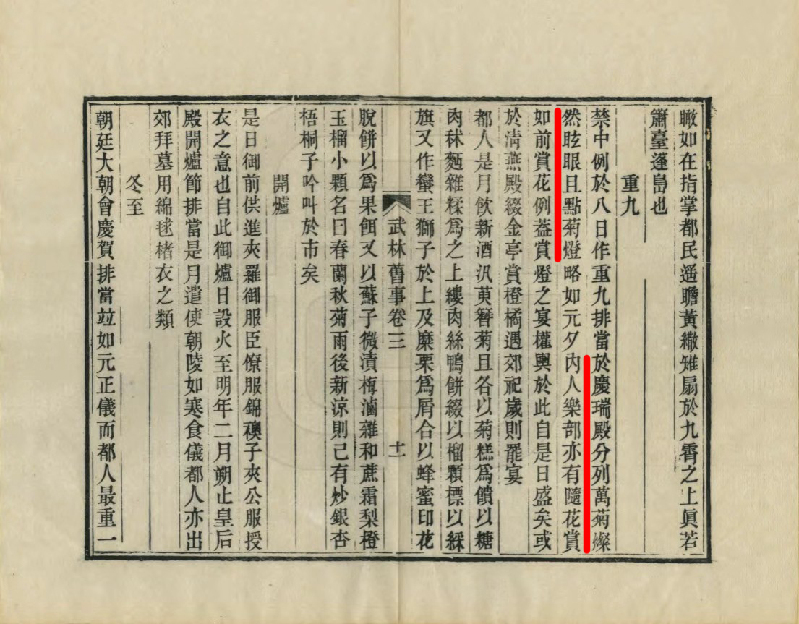 瞰如在指掌都民遥瞻黃繖雉扇於九霄之上眞若
簫臺蓬島也
重九
禁中例於八日作重九排當於慶瑞殿分列萬菊燦
然眩眼且點菊燈略如元夕内人樂部亦有隨花賞
如前賞花例葢賞燈之宴權輿於此自是日盛矣或
於清燕殿綴金亭賞橙橘遇郊祀歲則罷宴
都人是月飲新酒汎萸簪菊且各以菊糕爲饋以糖
肉秫麵雜糅爲之上縷肉絲鴨餅綴以榴顆摽以綵
旗又作蠻王獅子於上及糜栗爲屑合以蜂蜜印花
武林舊事卷三 十
脫餅以爲果餌又以蘇子微漬梅滷雜和蔗霜梨橙
玉榴小顆名曰春蘭秋菊雨後新涼則已有炒銀杏
梧桐子吟叫於市矣
開爐
是日御前供進夾羅御服臣僚服錦襖子夾公服授
衣之意也自此御爐日設火至明年二月朔止皇后
殿開爐節排當是月遣使朝陵如寒食儀都人亦出
郊拜墓用綿毬楮衣之類
冬至
朝廷大朝會慶賀排當竝如元正儀而都人最重一